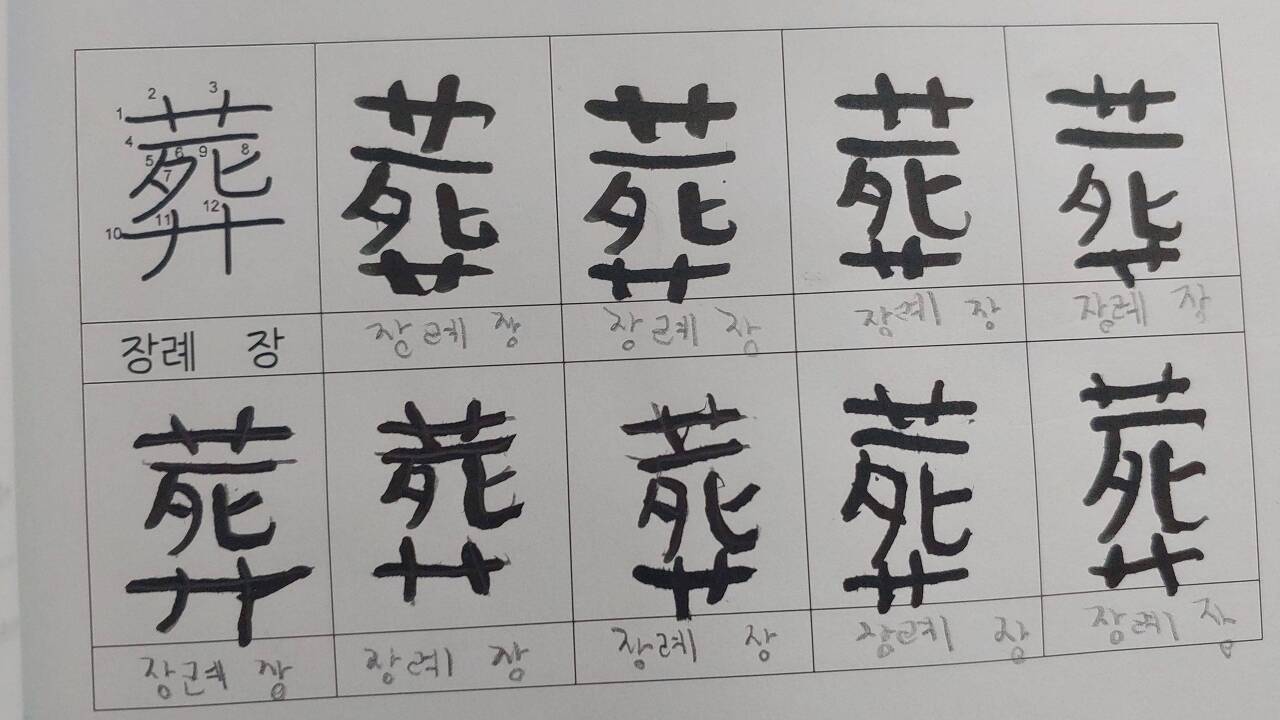 葬 葬 葬 葬 葬
1 2 3 4 5 6 7 8 9 10 11 12
장례 장 장례 장 장례 장 장례 장 장례 장
葬 葬 葬 葬 葬
장례 장 장례 장 장례 장 장례 장 장례 장